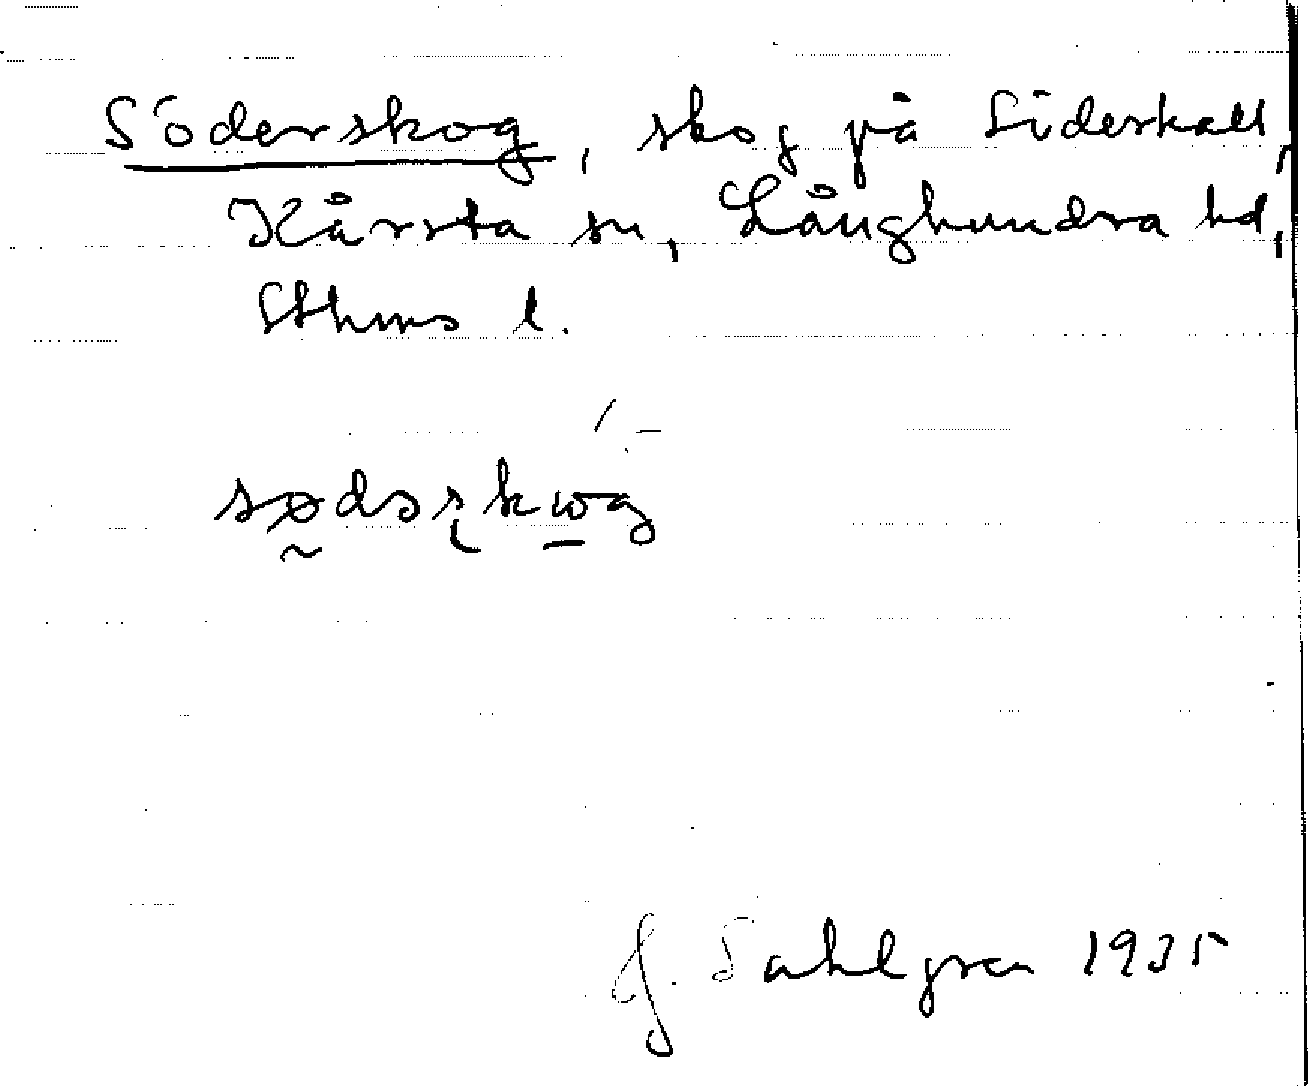 Söderskog, skog på Söderhall,
Kårsta sn, Långhundra hd,
Sthms l.
sødərskωg
J. Sahlgren 1935